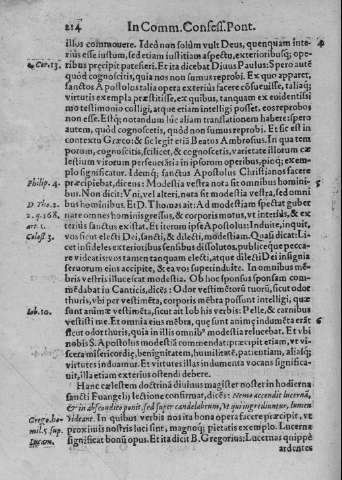 214 In Comm. Confess. Pont.
illos commouere. Ideò non solùm vult Deus, quenquam inte- 4
riùs esse iustum, sed etiam iustitiam aspectu, exterioribusq; ope-
2. Cor. 13. ribus præcipit patefieri. Et ita dicebat Diuus Paulus: Spero autē
quòd cognoscitis, quia nos non sumus reprobi. Ex quo apparet,
sanctos Apostolus talia opera exteriùs facere cōsueuisse, taliaq́;
virtutis exempla præstitisse, ex quibus, tanquam ex euidentissi
mo testimonio colligi, atque etiam intelligi posset, eos reprobos
non esse. Estq́; notandum hìc aliam translationem habere: spero
autem, quòd cognoscetis, quòd non sumus reprobi. Et sic est in
contextu Græco: & sic legit etiā Beatus Ambrosius. In qua tem
porum, cognoscitis, scilicet, & cognoscetis, varietate illorum cæ
lestium virorum perseuerātia in ipsorum operibus, pioq́; exem-
plo significatur. Idemq́; sanctus Apostolus Christianos facere
Philip. 4. præcipiebat, dicens: Modestia vestra nota sit omnibus homini- 5
bus. Non dicit: Vni, vel alteri, nota sit modestia vestra, sed omni
D. Tho. 2. bus hominibus. Et D. Thomas ait: Ad modestiam spectat guber
2. q. 168. nare omnes hominis gressus, & corporis motus, vt interiùs, & ex
art. 1. teriùs sanctus existat. Et iterum ipse Apostolus: Induite, inquit,
Coloss. 3. vos sicut electi Dei, sancti, & dilecti, modestiam. Quasi dicat: Li-
cet infideles exterioribus sensibus dissolutos, publicè que pecca-
re videatis: vos tamen tanquam electi, atque dilecti Dei insignia
seruorum eius accipite, & ea vos superinduite. In omnibus mē-
bris vestris illucescat modestia. Ob hoc sponsus sponsam com-
mēdabat in Canticis, dicēs: Odor vestimētorū tuorū, sicut odor
thuris, vbi per vestimēta, corporis mēbra possunt intelligi, quæ
Iob. 10. sunt animæ vestimēta, sicut ait Iob his verbis: Pelle, & carnibus
vestisti me. Et omnia eius mēbra, quę sunt animę indumēta erāt 6
sicut odor thuris, quia in illis omnibꝰ modestia relucebat. Et vbi
nobis S. Apostolus modestiā commendat: præcipit etiam, vt vi-
scera misericordię, benignitatem, humilitatē, patientiam, aliasq́;
virtutes induamur. Et virtutes illas indumenta vocans significa-
uit, illa etiam exteriùs ostendi debere.
Hanc cælestem doctrinā diuinus magister noster in hodierna
sancti Euangelij lectione confirmat, dicēs: Nemo accendit lucernā,
& in abscondito ponit, sed super candelabrum, vt qui ingrediuntur, lumen
Grego. ho- videant. In quibus verbis nos ita bona opera facere præcipit, vt
mil. 5. sup. proximis nostris luci sint, magnoq́; pietatis exemplo. Lucerna
significat bonū opus. Et ita dicit B. Gregorius: Lucernas quippè
ardentes